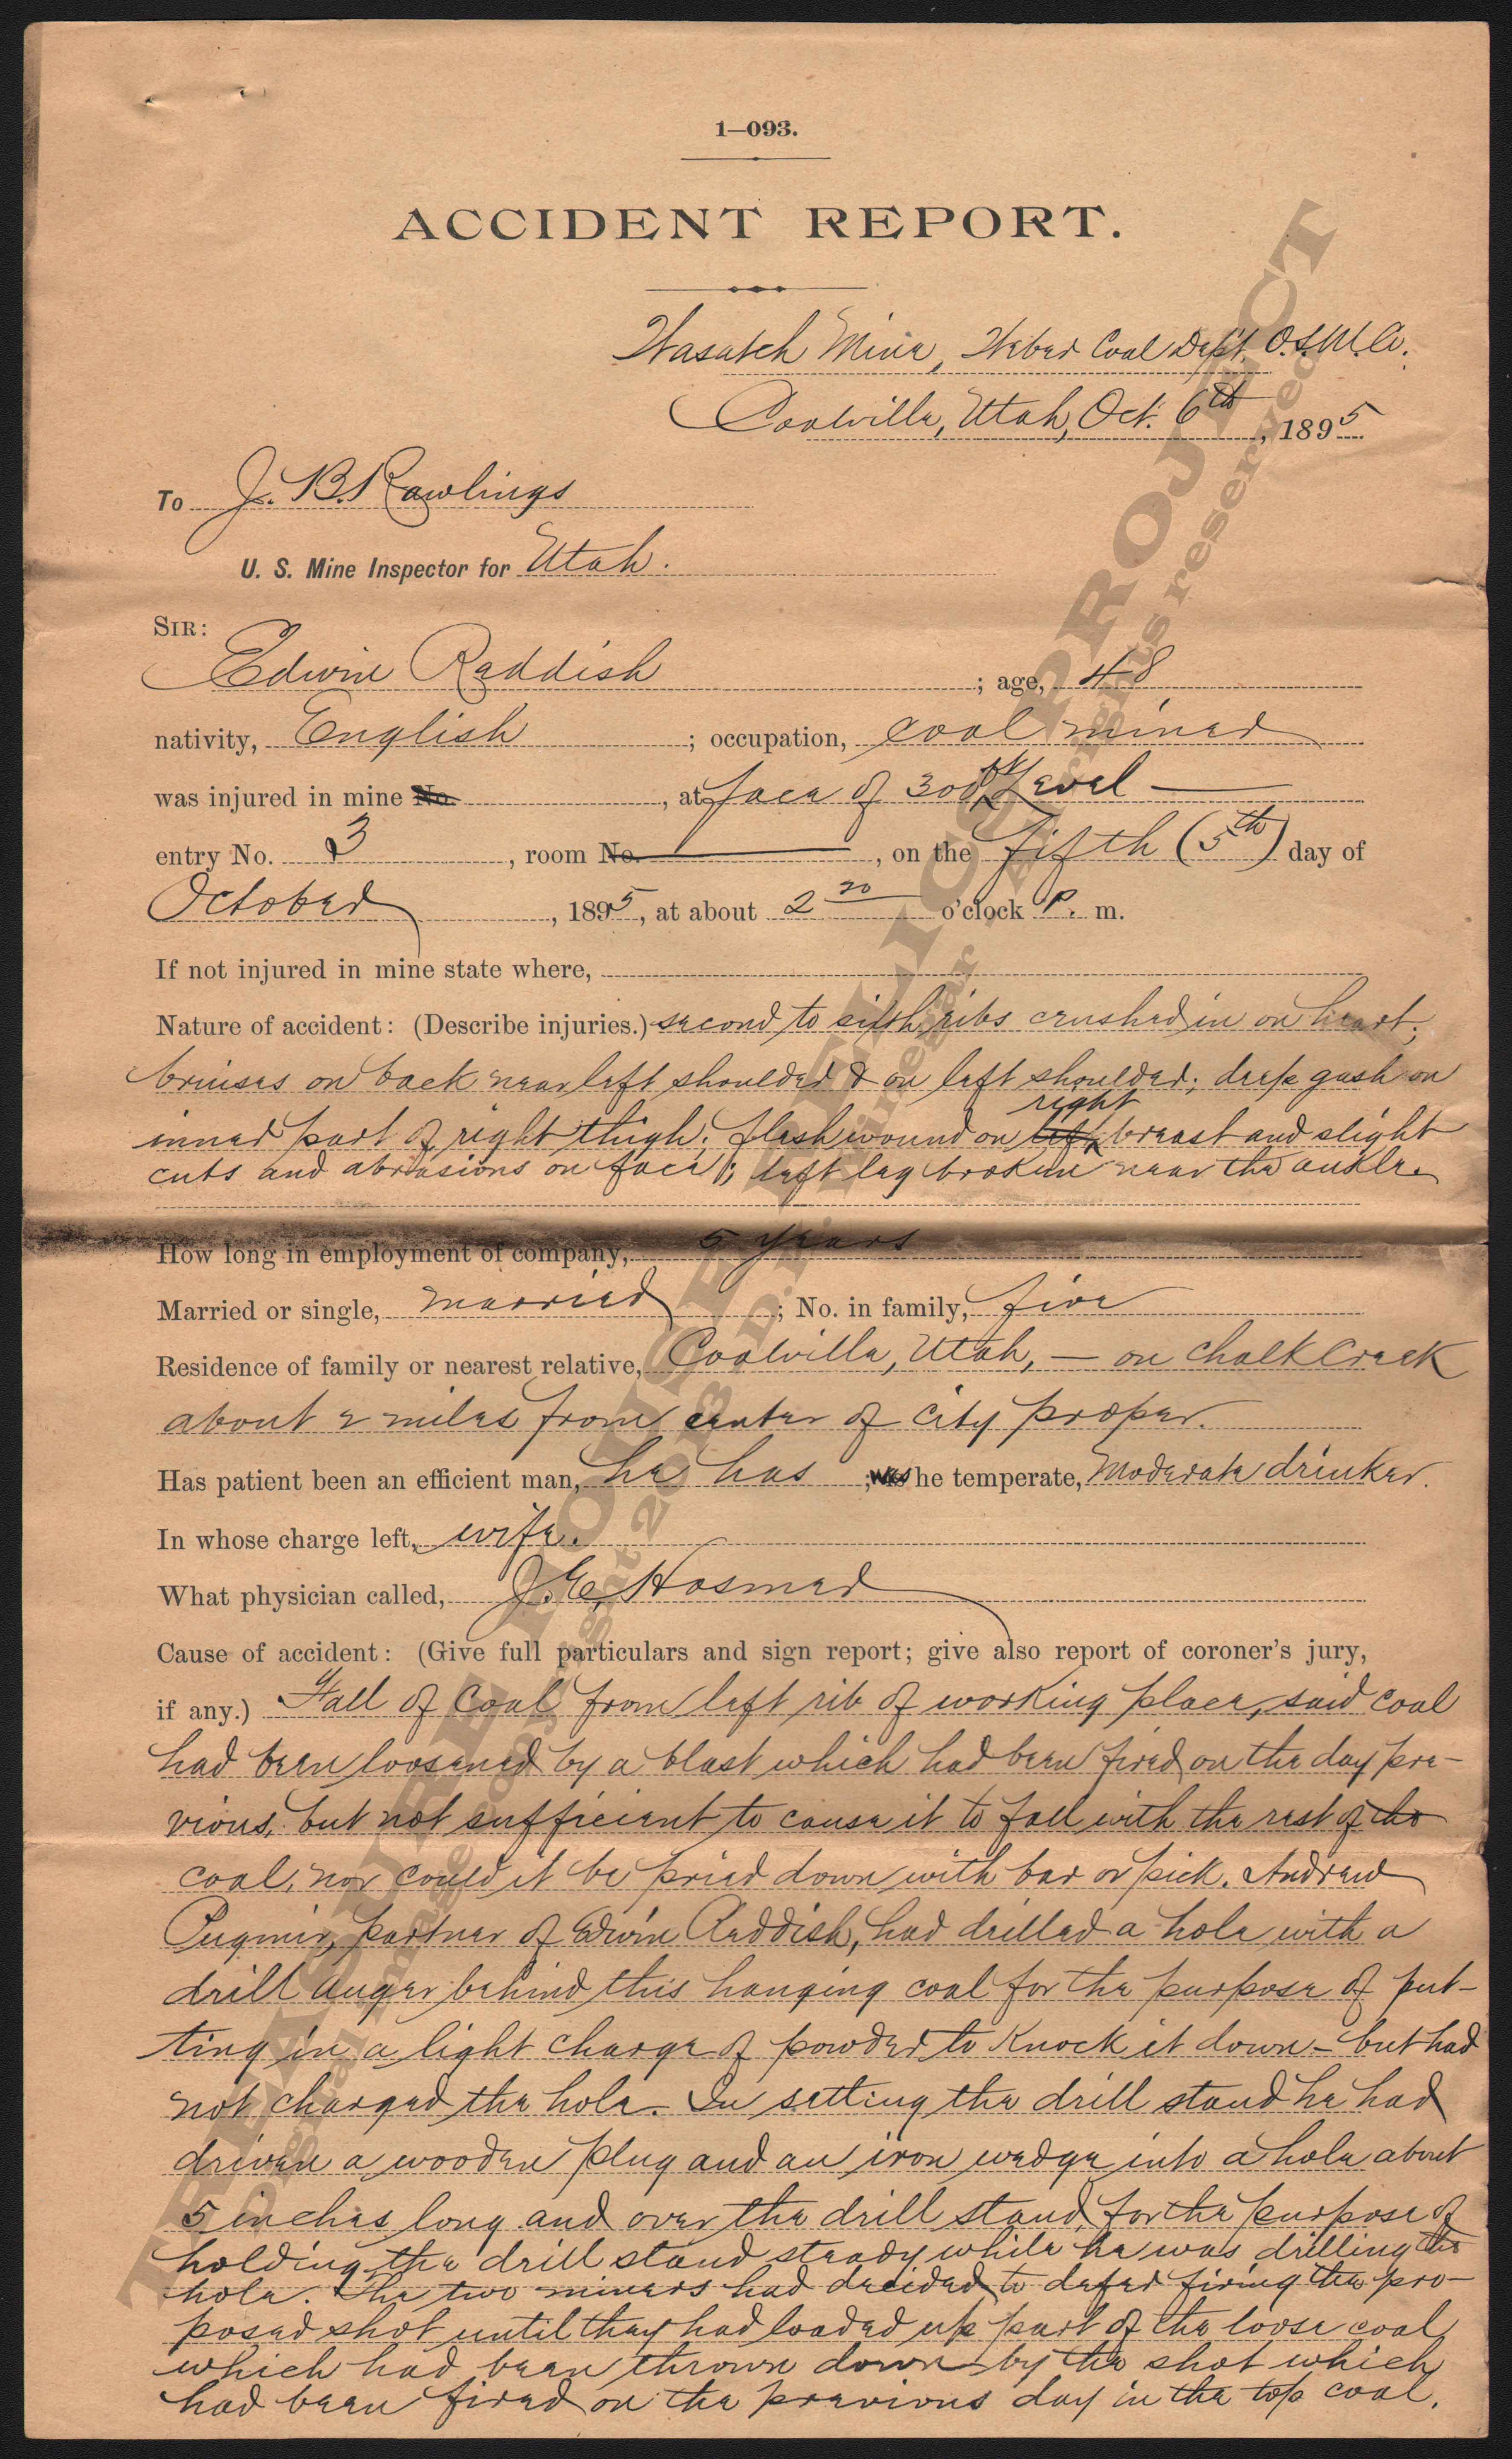 1—093.
ACCIDENT REPORT.
Wasatch Mine, Weber Coal Dept. O.S.M.Co.
Coalville, Utah, Oct. 6th, 1895
To J. B. Rawlings
U. S. Mine Inspector for Utah.
SIR:
Edwin Reddish ; age, 48
nativity, English ; occupation, coal miner
was injured in mine No. , at face of 300 ft Level —
entry No. 3 , room No. , on the fifth (5th) day of
October , 1895, at about 2 20 o'clock P. m.
If not injured in mine state where,
Nature of accident: (Describe injuries.) second to sixth ribs crushed in on heart;
bruises on back near left shoulder & on left shoulder; deep gash on
inner part of right thigh; flesh wound on left right breast and slight
cuts and abrasions on face; left leg broken near the ankle.
How long in employment of company, 5 years
Married or single, married ; No. in family, five
Residence of family or nearest relative, Coalville, Utah, — on Chalk Creek
about 2 miles from center of city proper.
Has patient been an efficient man, he has ; was he temperate, Moderate drinker.
In whose charge left, wife.
What physician called, J. E. Hosmer
Cause of accident: (Give full particulars and sign report; give also report of coroner's jury,
if any.) Fall of Coal from left rib of working place, said coal
had been loosened by a blast which had been fired on the day pre-
vious, but not sufficient to cause it to fall with the rest of the
coal, nor could it be pried down with bar or pick. Andrew
Pugmir, partner of Edwin Reddish, had drilled a hole with a
drill auger behind this hanging coal for the purpose of put-
ting in a light charge of powder to knock it down — but had
not charged the hole. In setting the drill stand he had
driven a wooden plug and an iron wedge into a hole about
5 inches long and over the drill stand, for the purpose of
holding the drill stand steady while he was drilling the
hole. The two miners had decided to defer firing the pro-
posed shot until they had loaded up part of the loose coal
which had been thrown down by the shot which
had been fired on the previous day in the top coal.
TREASURE HOUSE RELICS PROJECT
Original image copyright 2013 D. A. Rights reserved